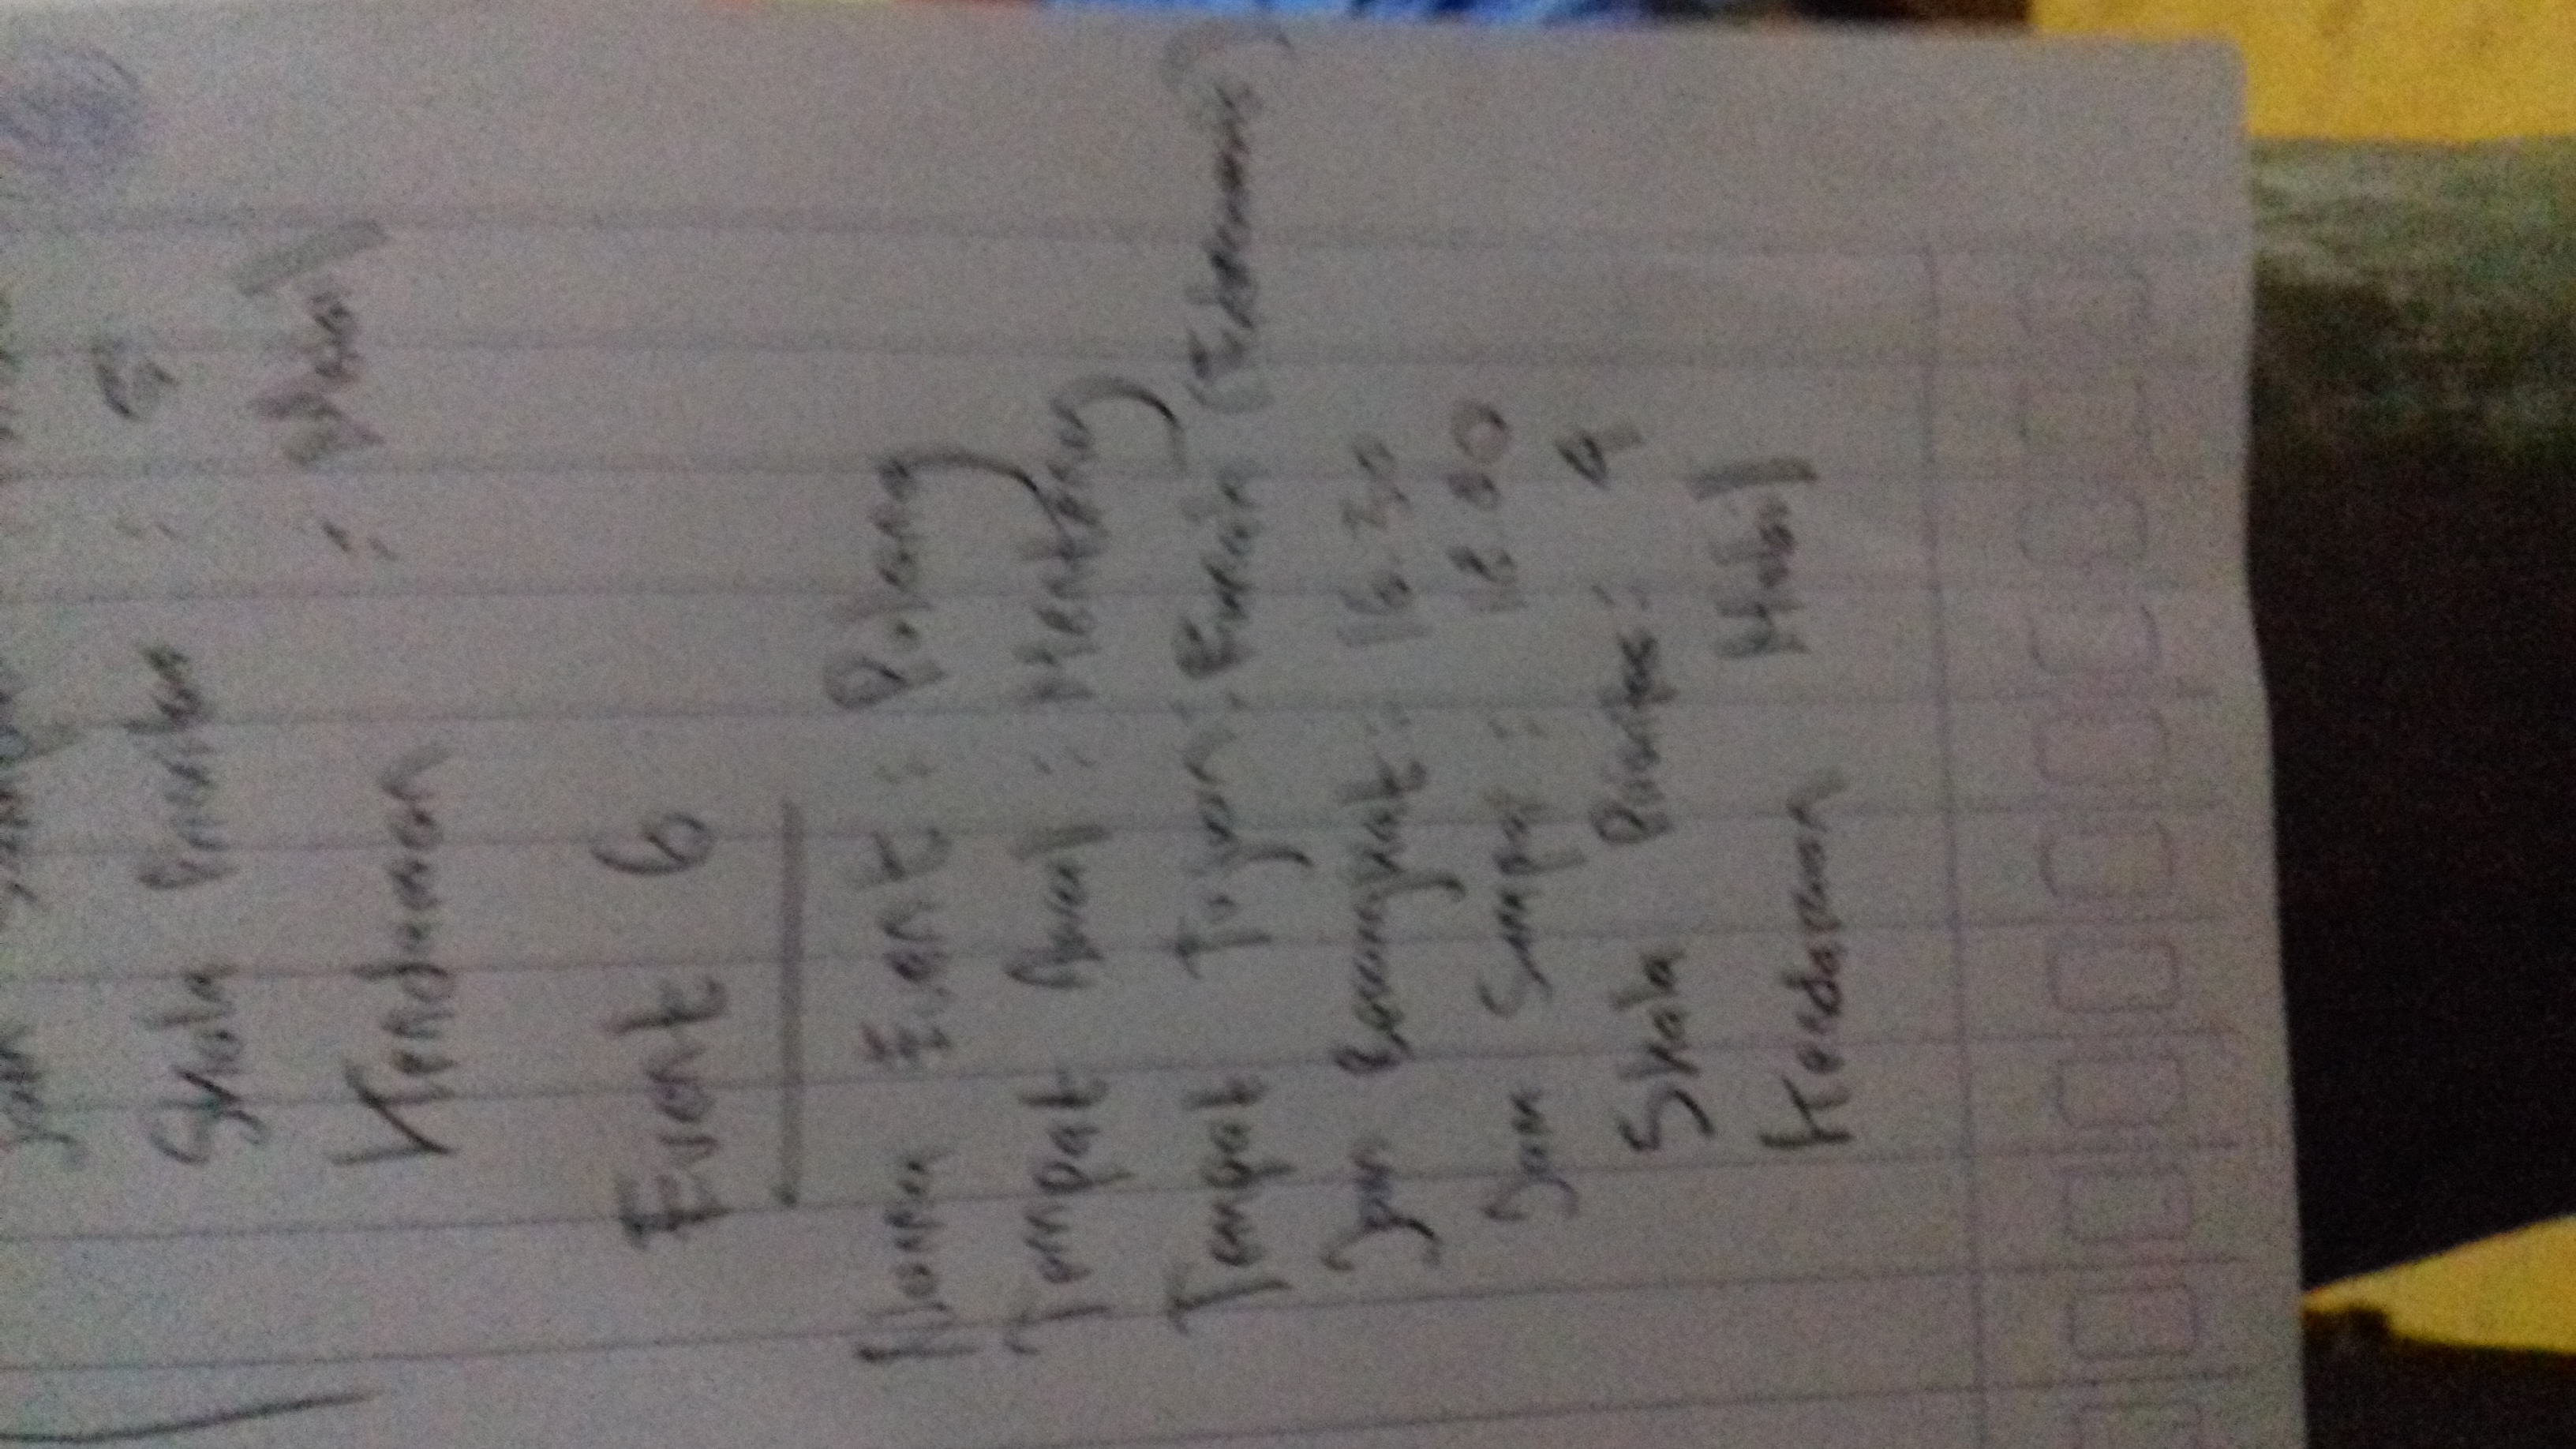 Jam Sampai
Skala Prioritas : 5
Kendaraan : Mobil
Event 6
Nama Event : Pulang
Tempat Awal : Menteng
Tempat Tujuan : Rumah
Jam Berangkat : 16.30
Jam Sampai : 18.00
Skala Prioritas : 4
Kendaraan Mobil